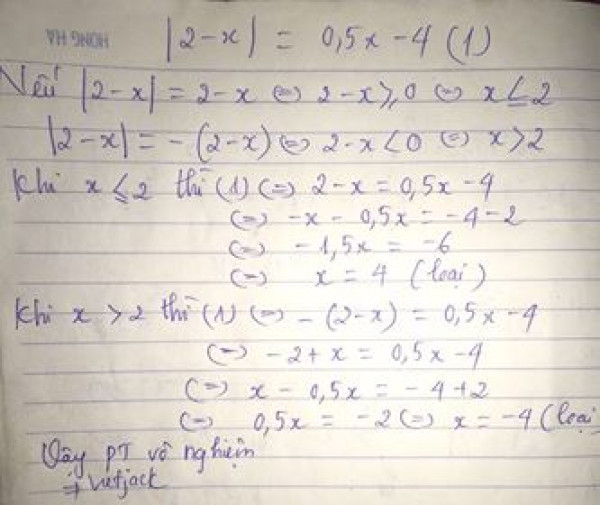 HONG HA
|2-x| = 0,5x - 4 (1)
Nếu |2-x| = 2-x ⇔ 2-x ≥ 0 ⇔ x ≤ 2
|2-x| = -(2-x) ⇔ 2-x < 0 ⇔ x > 2
Khi x ≤ 2 thì (1) ⇔ 2-x = 0,5x - 4
⇔ -x - 0,5x = -4-2
⇔ -1,5x = -6
⇔ x = 4 (loại)
Khi x > 2 thì (1) ⇔ -(2-x) = 0,5x - 4
⇔ -2+x = 0,5x - 4
⇔ x - 0,5x = -4+2
⇔ 0,5x = -2 ⇔ x = -4 (loại
Vậy PT vô nghiệm
⇒ vietjack